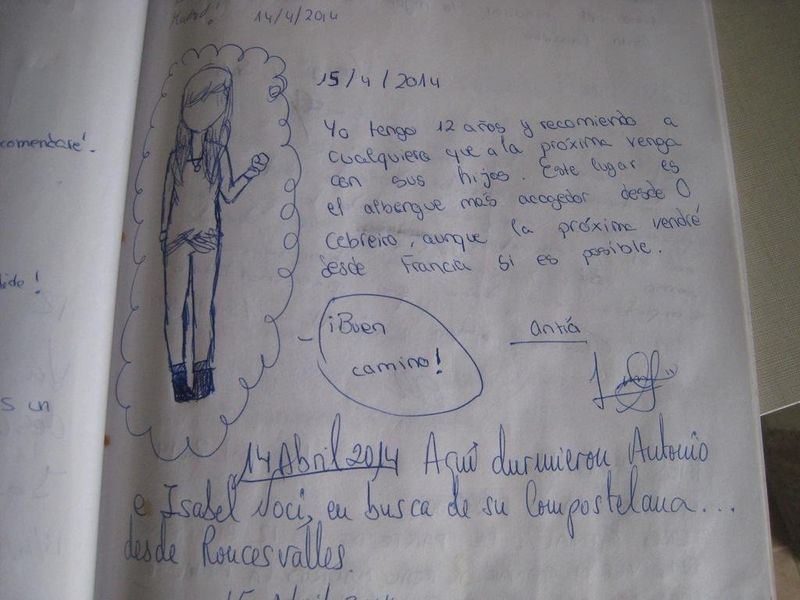 Madrid!
14/4/2014
comendaré!
15/4/2014
Yo tengo 12 años y recomiendo a
cualquiera que a la próxima venga
con sus hijos. Este lugar es
el albergue más acogedor desde O
Cebreiro, aunque la próxima vendré
desde Francia si es posible.
¡Buen
camino!
Antía
s un
14 Abril 2014 Aquí durmieron Antonio
e Isabel Noci, en busca de su Compostelana...
desde Roncesvalles.
15 Abril